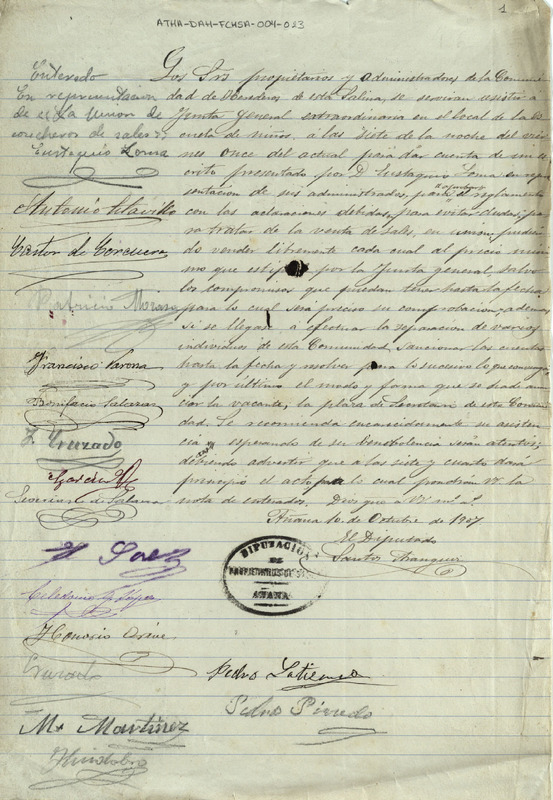 ATHA-DAH-FCMSA-004-023
1
Los Srs propietarios y administradores de la Comuni
dad de Herederos de esta Salina, se serviran asistir a
Junta General extraordinaria en el local de la Es
cuela de niños, a las siete de la noche del vier
nes once del actual para dar cuenta de un es
crito presentado por D. Eustaquio Loma en repre
sentacion de sus administrados, para el reglamento
con las aclaraciones debidas, para evitar dudas, pa
ra tratar de la venta de sales, en union, pudien
do vender libremente cada cual al precio mini
mo que por la Junta general salvo
los compromisos que puedan tener hasta la fecha,
para lo cual será preciso su comprobacion, ademas
si se llegará a efectuar la separacion de varios
individuos de esta Comunidad, sancionar las cuentas
hasta la fecha y resolver para lo sucesivo lo que convenga
y por ultimo el modo y forma que se ha de anun
ciar la vacante, la plaza de Secretario de esta Comuni
dad. Se recomienda encarecidamente su asisten
cia esperando de su benebolencia serán atentos,
debiendo advertir que a las siete y cuarto dará
principio el acto, lo cual pondrán Vs. la
nota de enterados. Dios gue a Vs. m. a.
Añana 10 de Octubre de 1907
El Diputado
Santos
DIPUTACION
DE
PROPIETARIOS DE
AÑANA
Enterado
En representacion
de
cocheros de sales
Eustaquio Loma
Antonio
Castor de Corcuera
Patricio
Francisco Varona
Bonifacio Salazar
Cruzado
Garcia
H Saez
Celedonio
Honorio
Cruzado
Pedro
Pedro Pinedo
Ma Martinez